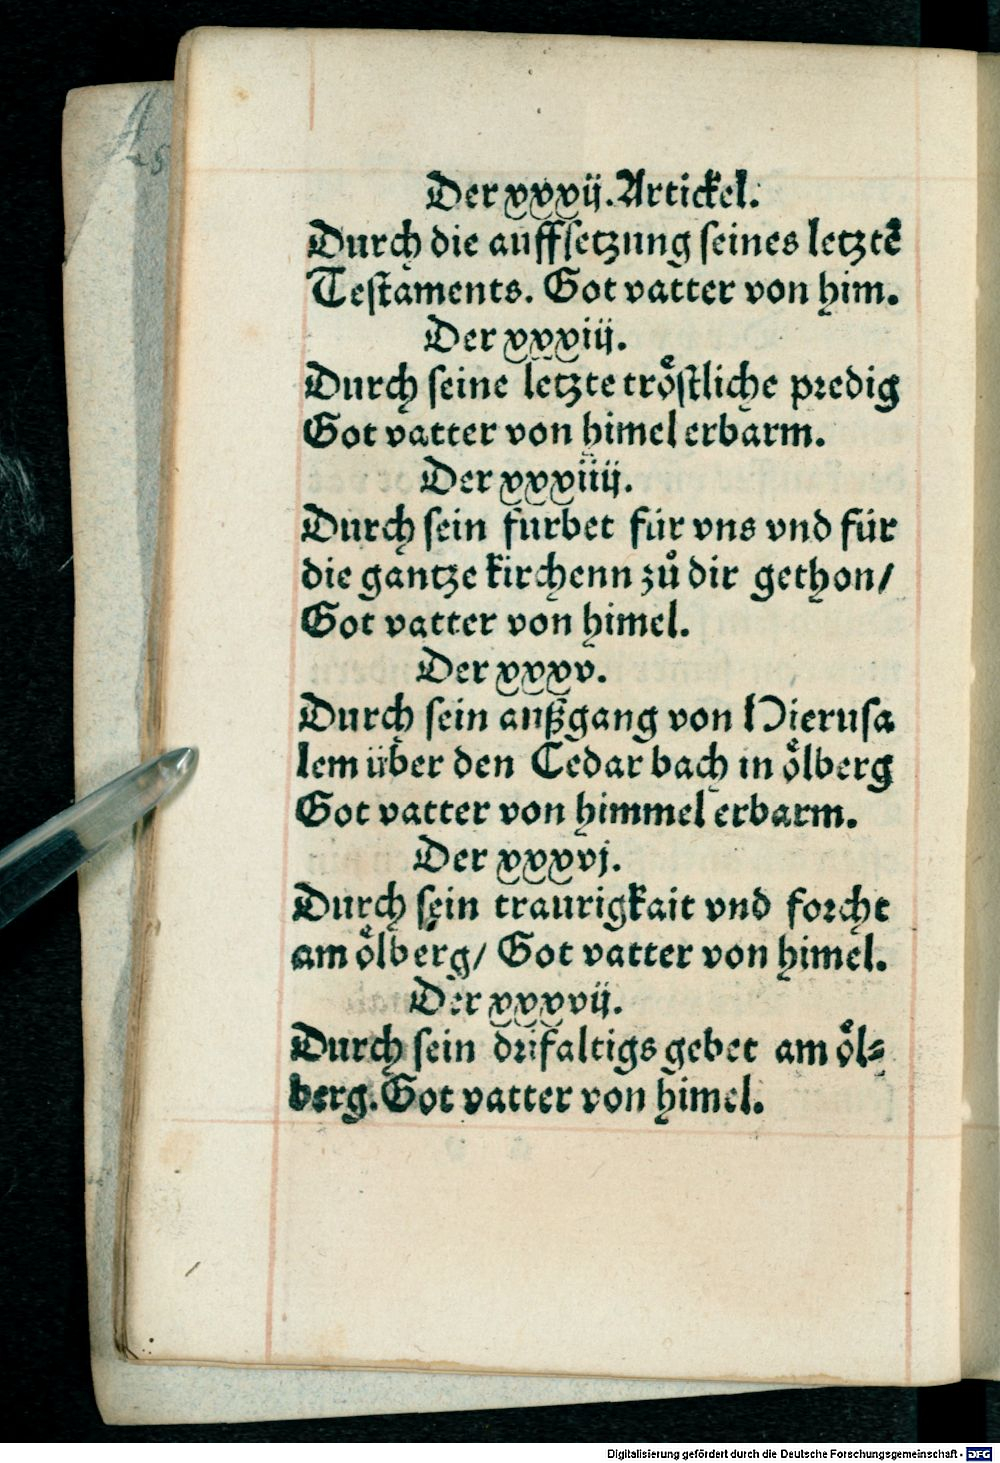 Der xxxij. Artickel.
Durch die auffsetzung seines letztē
Testaments. Got vatter von him.
Der xxxiij.
Durch seine letzte troͤstliche predig
Got vatter von himel erbarm.
Der xxxiiij.
Durch sein furbet für vns vnd für
die gantze kirchenn zuͦ dir gethon/
Got vatter von himel.
Der xxxv.
Durch sein außgang von Hierusa
lem über den Cedar bach in oͤlberg
Got vatter von himmel erbarm.
Der xxxvj.
Durch sein traurigkait vnd forcht
am oͤlberg/ Got vatter von himel.
Der xxxvij.
Durch sein drifaltigs gebet am oͤl-
berg. Got vatter von himel.
Digitalisierung gefördert durch die Deutsche Forschungsgemeinschaft - DFG